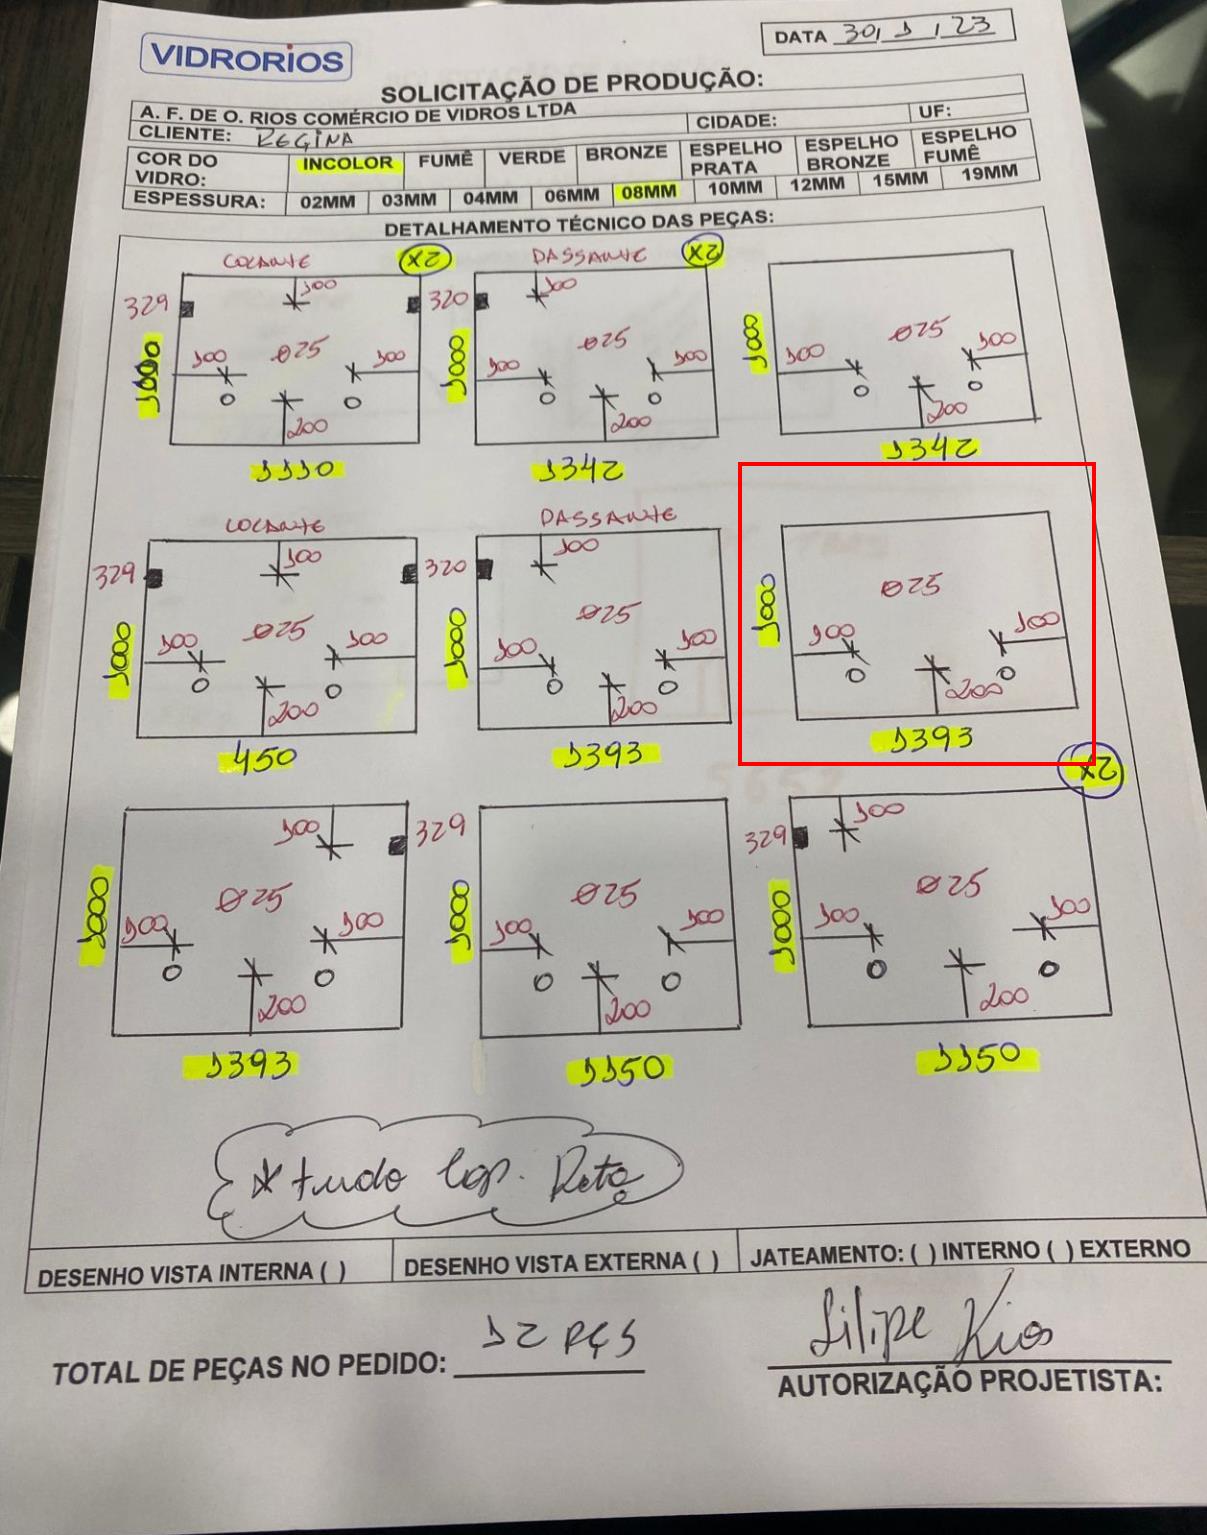 VIDRORIOS
DATA 30/1/23
SOLICITAÇÃO DE PRODUÇÃO:
A. F. DE O. RIOS COMÉRCIO DE VIDROS LTDA
CIDADE:
UF:
CLIENTE: REGINA
COR DO VIDRO: INCOLOR FUMÊ VERDE BRONZE ESPELHO PRATA ESPELHO BRONZE ESPELHO FUMÊ
ESPESSURA: 02MM 03MM 04MM 06MM 08MM 10MM 12MM 15MM 19MM
DETALHAMENTO TÉCNICO DAS PEÇAS:
COLANTE X2
329 100
1000 100 Ø25 100
200
1110
PASSANTE X2
320 100
1000 100 Ø25 100
200
1342
1000 100 Ø25 100
200
1342
COLANTE
329 100
1000 100 Ø25 100
200
450
PASSANTE
320 100
1000 100 Ø25 100
200
1393
1000 100 Ø25 100
200
1393
100 329
1000 100 Ø25 100
200
1393
1000 100 Ø25 100
200
1150
X2
329 100
1000 100 Ø25 100
200
1150
* tudo Lap. Reta
DESENHO VISTA INTERNA ( )
DESENHO VISTA EXTERNA ( )
JATEAMENTO: ( ) INTERNO ( ) EXTERNO
TOTAL DE PEÇAS NO PEDIDO: 12 PÇS
Filipe Rios
AUTORIZAÇÃO PROJETISTA: